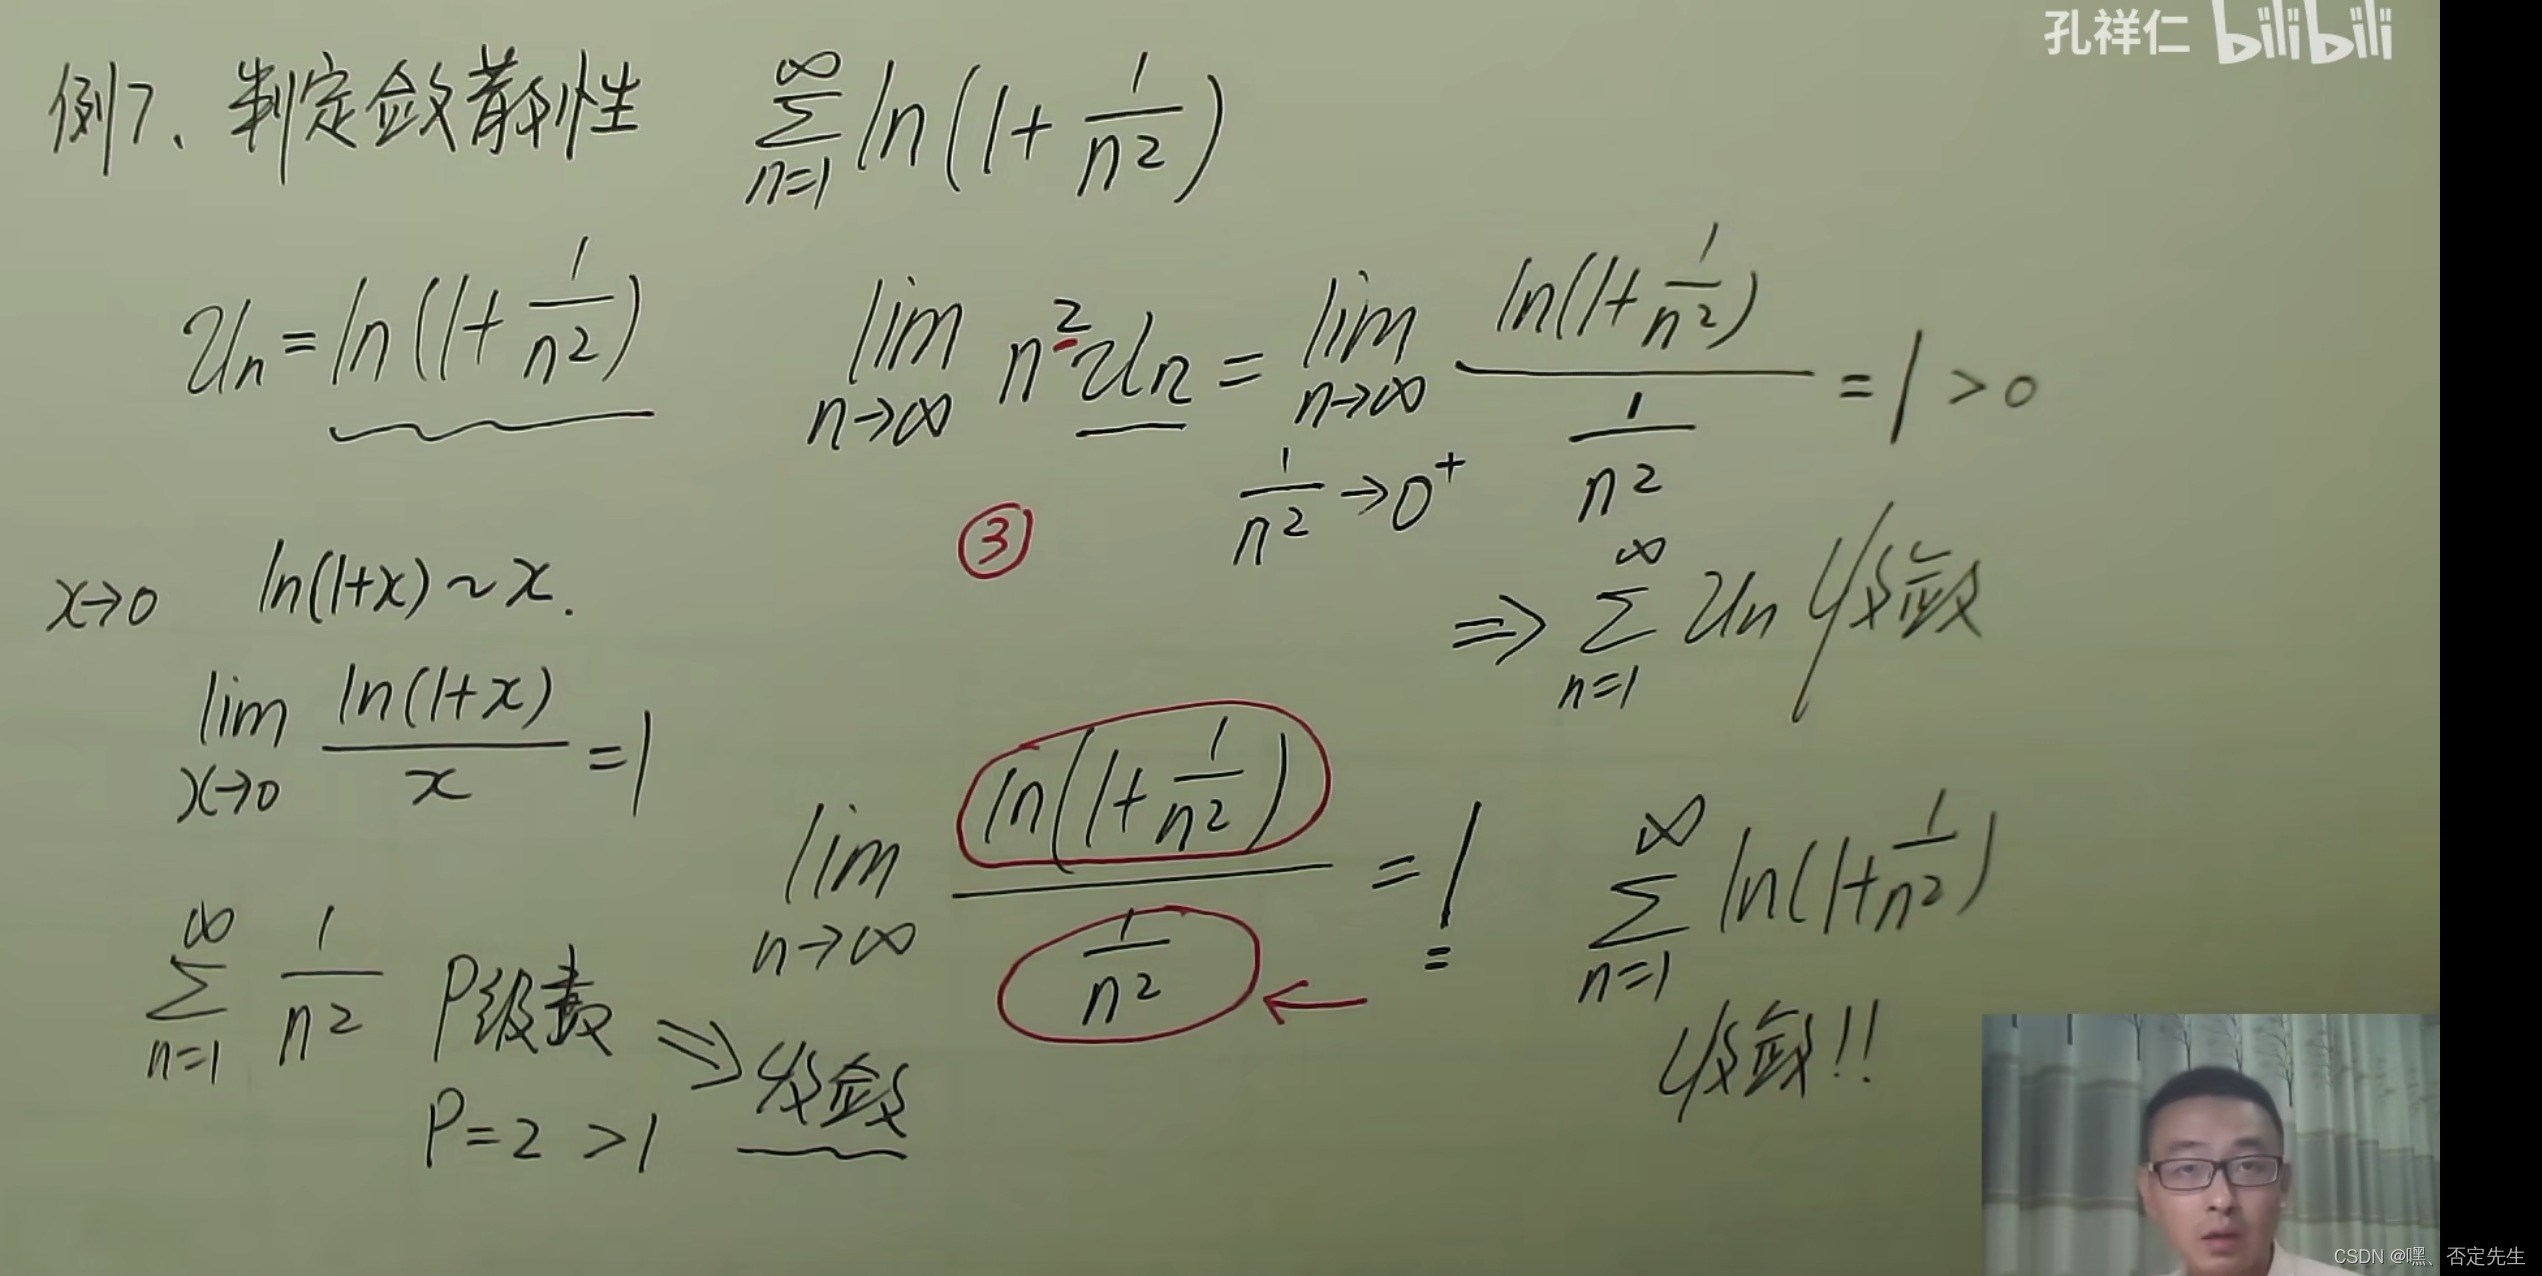 孔祥仁 bilibili
例7、判定敛散性 ∑_{n=1}^{∞} ln(1+1/n²)
Un=ln(1+1/n²)
lim_{n→∞} n²Un = lim_{n→∞} ln(1+1/n²)/(1/n²) = 1 > 0
1/n² → 0⁺
③
⇒ ∑_{n=1}^{∞} Un 收敛
x→0 ln(1+x) ~ x.
lim_{x→0} ln(1+x)/x = 1
lim_{n→∞} ln(1+1/n²)/(1/n²) = 1
∑_{n=1}^{∞} ln(1+1/n²)
收敛!!
∑_{n=1}^{∞} 1/n² P级数 ⇒ 收敛
P=2 >1
CSDN @嘿、否定先生